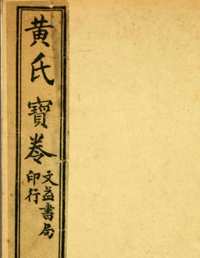 黄氏寶卷
文益書局
印行